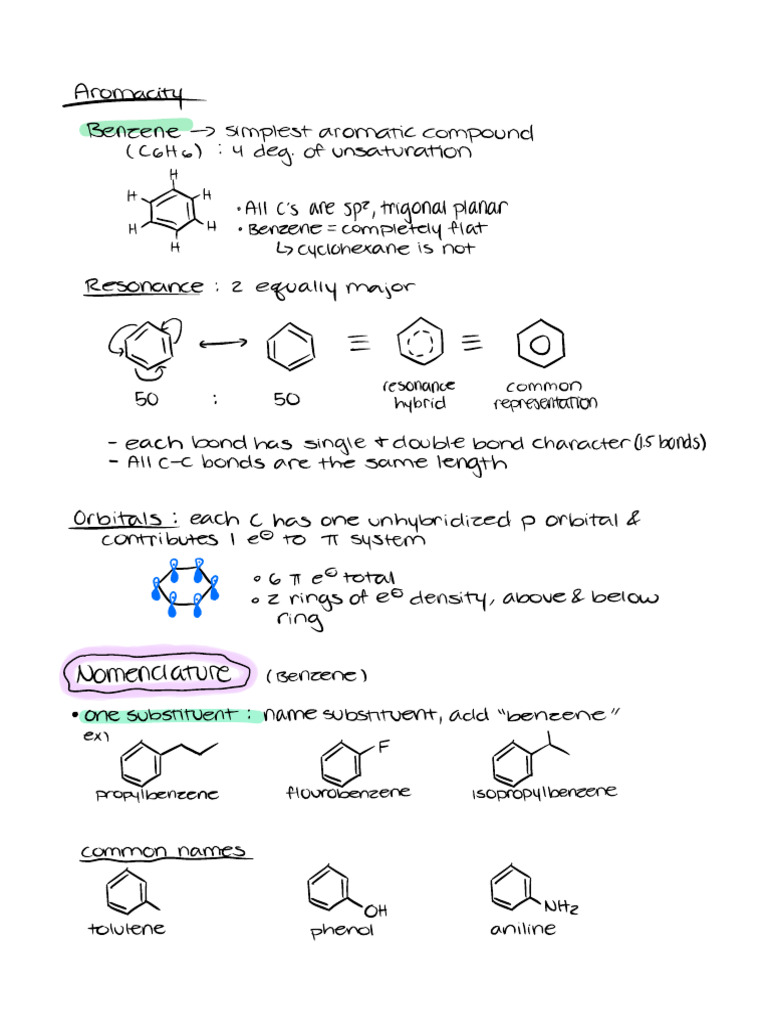 Aromacity
Benzene → simplest aromatic compound
(C6H6) : 4 deg. of unsaturation
H
H H
H H
H
• All C's are sp², trigonal planar
• Benzene = completely flat
↳ cyclohexane is not
Resonance : 2 equally major
50 : 50
resonance hybrid
common representation
- each bond has single & double bond character (1.5 bonds)
- All C-C bonds are the same length
Orbitals : each C has one unhybridized p orbital &
contributes 1 e⊖ to π system
• 6 π e⊖ total
• 2 rings of e⊖ density, above & below
ring
Nomenclature (Benzene)
• one substituent : name substituent, add "benzene"
ex)
F
propylbenzene flourobenzene isopropylbenzene
common names
OH NH2
tolutene phenol aniline